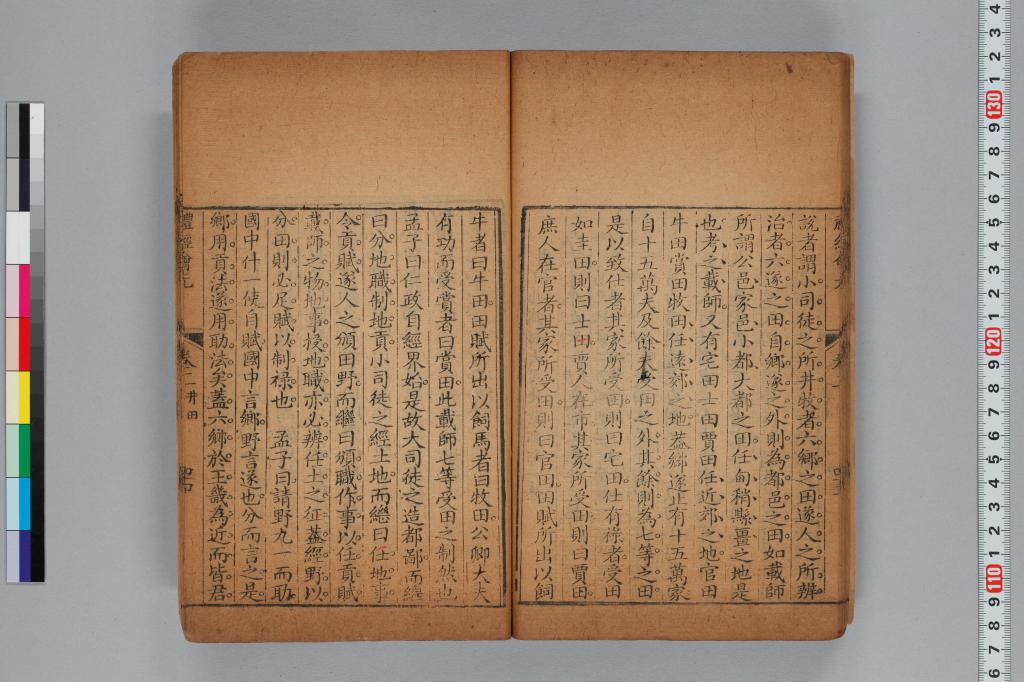 說者謂小司徒之所井牧者六鄉之田遂人之所辨
治者六遂之田自鄉遂之外則為都邑之田如載師
所謂公邑家邑小都大都之田任甸稍縣畺之地是
也考之載師又有宅田士田賈田任近郊之地官田
牛田賞田牧田任遠郊之地蓋鄉遂止有十五萬家
自十五萬夫及餘夫多田之外其餘則為七等之田
是以致仕者其家所受田則曰宅田仕有祿者受田
如圭田則曰士田賈人在市其家所受田則曰賈田
庶人在官者其家所受田則曰官田田賦所出以飼
牛者曰牛田田賦所出以飼馬者曰牧田公卿大夫
有功而受賞者曰賞田此載師七等受田之制然也
孟子曰仁政自經界始是故大司徒之造都鄙而繼
曰分地職制地貢小司徒之經土地而繼曰任地事
令貢賦遂人之頒田野而繼曰頒職作事以任貢賦
載師之物地事授地職亦必辨任土之征蓋經野以
分田則必足賦以制祿也 孟子曰請野九一而助
國中什一使自賦國中言鄉野言遂也分而言之是
鄉用貢法遂用助法矣蓋六鄉於王畿為近而皆君
禮經會元
卷二 井田
四十